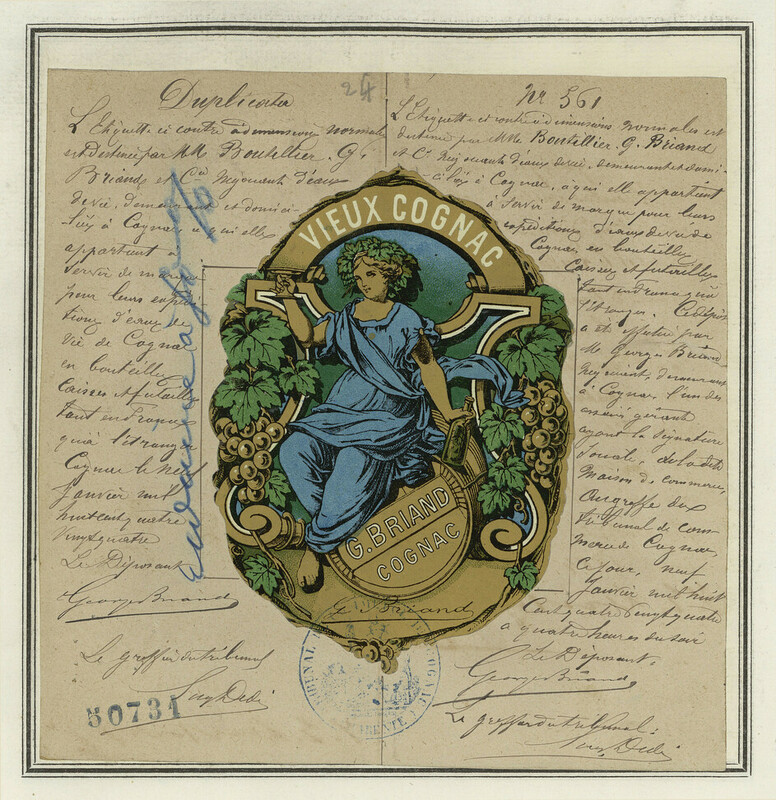 Duplicata
24
L'Etiquette ci contre à dimensions normales
est destinée par MM Boutellier. G.
Briand et Cie Négociants d'eaux
de vie, demeurant et domici-
liés à Cognac, à qui elle
appartient
servir de marque
pour leurs expédi
tions d'eaux de
vie de Cognac
en bouteilles
Caisses et futailles
tant en France
qu'à l'étranger
Cognac le neuf
Janvier mil
huit cent quatre
vingt quatre
Le Déposant
Georges Briand
Le greffier du tribunal
50731
No 561
L'Etiquette ci contre à dimensions normales est
destinée par MM. Boutellier. G. Briand
et Cie Négociants d'eaux de vie, demeurant et domi-
ciliés à Cognac, à qui elle appartient
à servir de marque pour leurs
expéditions d'eaux de vie de
Cognac en bouteilles
Caisses et futailles
tant en France qu'à
l'étranger. Ce dépôt
a été effectué par
M. Georges Briand
Négociant, demeurant
à Cognac, l'un des
associés gérant
ayant la signature
sociale, de la dite
Maison de commerce,
au greffe du
tribunal de com-
merce de Cognac,
ce jour, neuf
Janvier mil huit
Cent quatre vingt quatre
à quatre heures du soir
Le Déposant.
Georges Briand
Le greffier du tribunal.
VIEUX COGNAC
G. BRIAND
COGNAC
G. Briand
TRIBUNAL
COGNAC